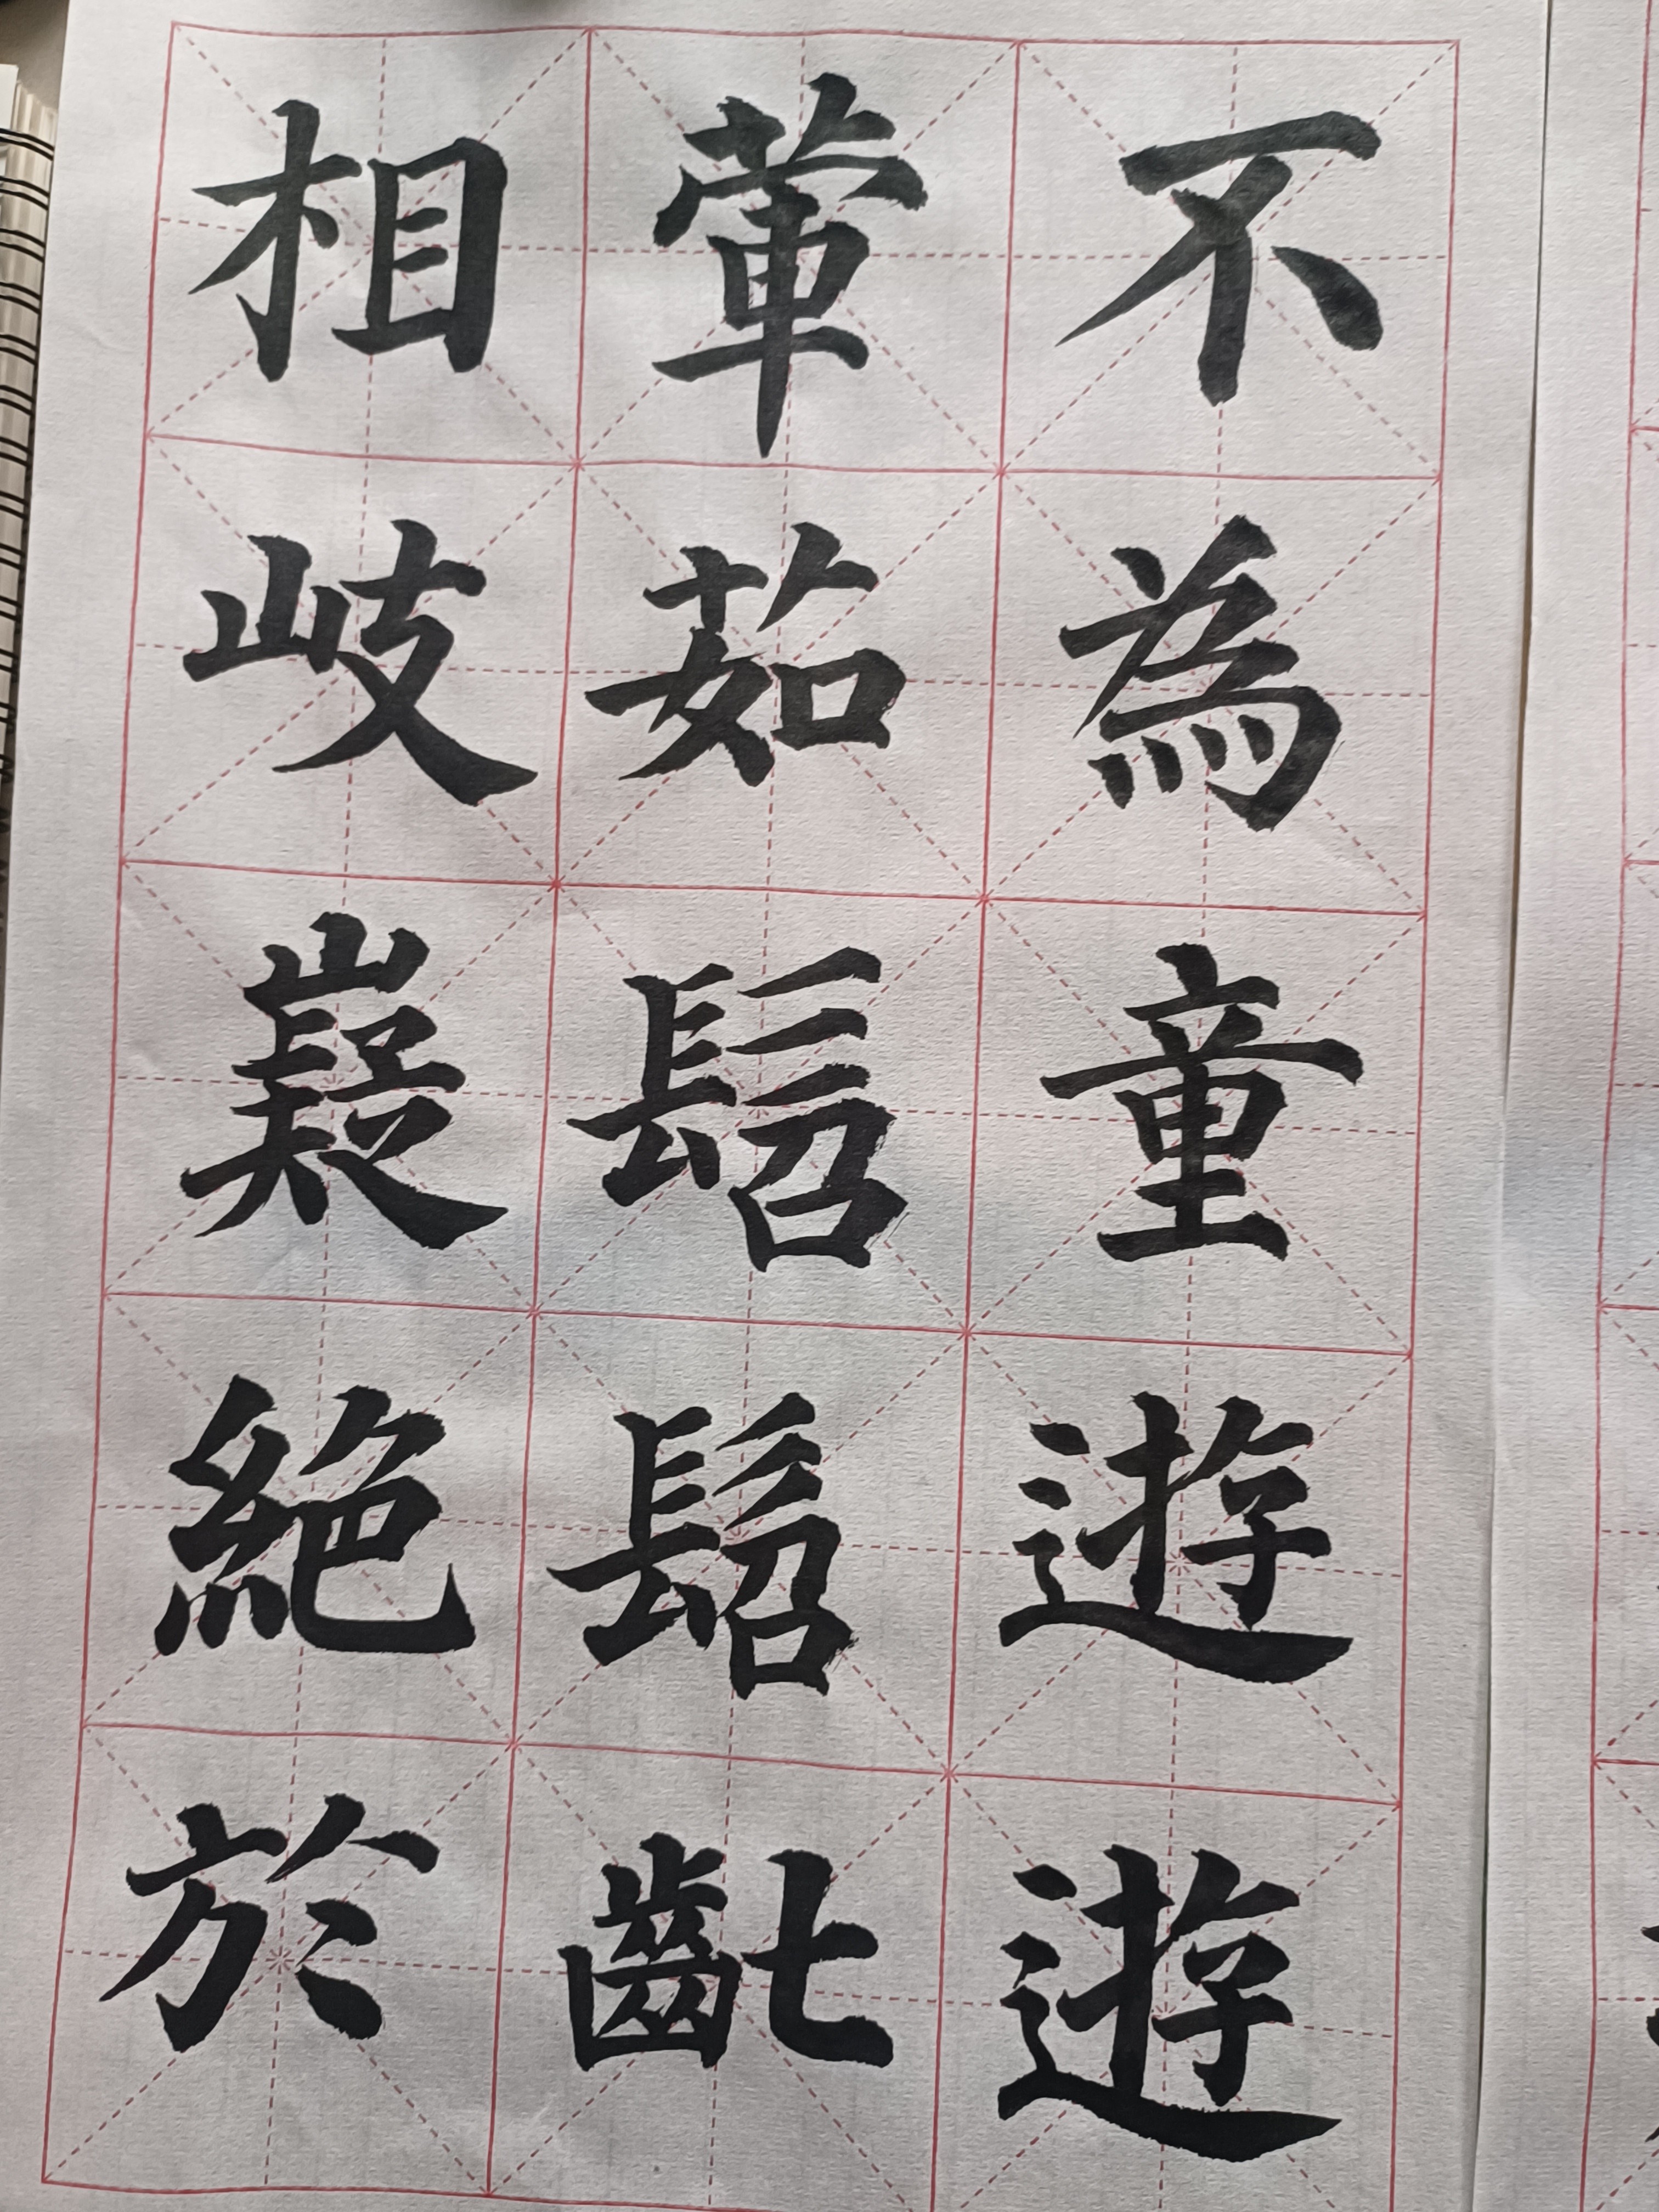 不為童遊遊
葷茹髫髫齔
相岐嶷絕於